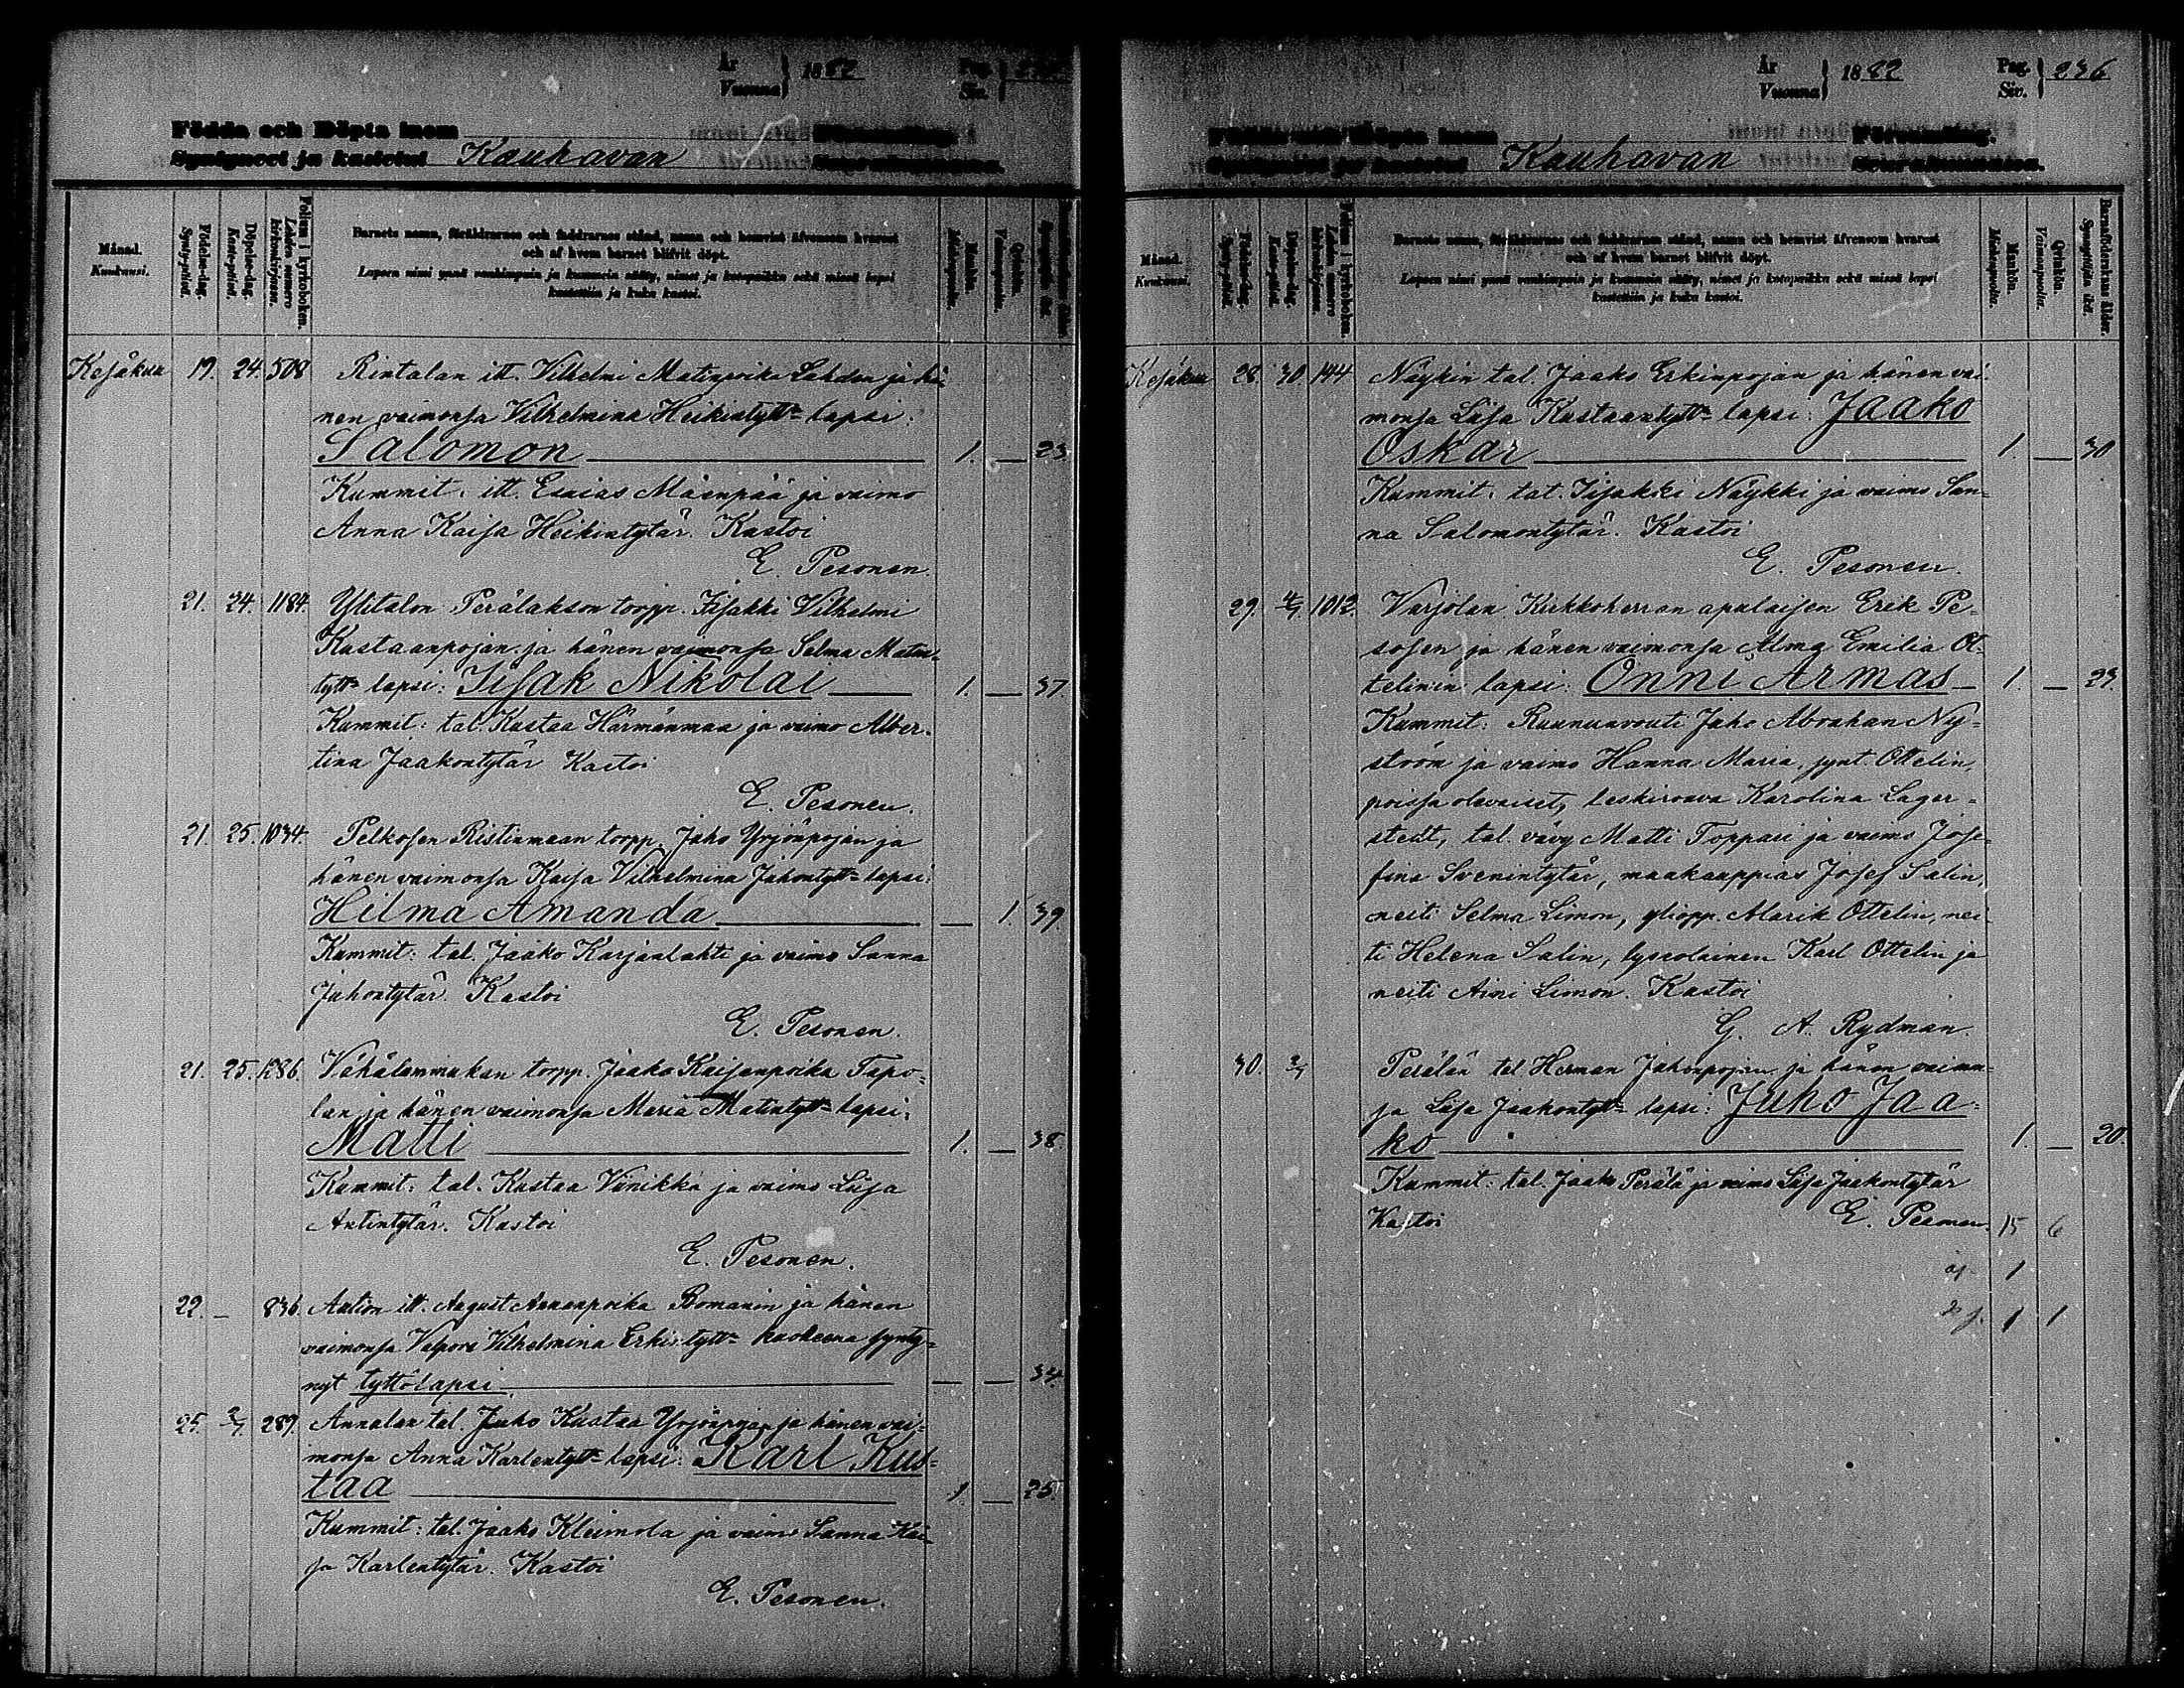 År
Vuonna } 1882
Pag.
Siv. }
Födda och Döpta inom
Syntyneet ja kastetut Kauhavan
Månad.
Kuukausi.
Födelse-dag.
Synty-päivä.
Döpelse-dag.
Kaste-päivä.
Folium i kyrkoboken.
Lehden numero kirkonkirjassa.
Barnets namn, föräldrarnes och faddrarnes stånd, namn och hemvist äfvensom hvarest
och af hvem barnet blifvit döpt.
Lapsen nimi ynnä vanhimpain ja kummein sääty, nimet ja kotopaikka sekä missä lapsi
kastettiin ja kuka kastoi.
Mankön.
Miehenpuolta.
Qvinkön.
Vaimonpuolta.
Kesäkuu 19. 24. 508 Rintalan itt. Vilhelmi Matinpoika Lahden ja hä-
nen vaimonsa Vilhelmina Heikintytt= lapsi:
Salomon 1. — 23.
Kummit: itt. Esaias Mäenpää ja vaimo
Anna Kaisa Heikintytär. Kastoi
E. Pesonen.
21. 24. 1184. Ylitalon Perälakson torpp. Iisakki Vilhelmi
Kustaanpojan ja hänen vaimonsa Selma Matin-
tytt= lapsi: Iisak Nikolai 1. — 37.
Kummit: tal. Kustaa Härmänmaa ja vaimo Alber-
tina Jaakontytär Kastoi
E. Pesonen.
21. 25. 1034. Pelkosen Ristinmaan torpp. Juho Yrjönpojan ja
hänen vaimonsa Kaisa Vilhelmina Juhontytt= lapsi:
Hilma Amanda — 1. 39.
Kummit: tal. Jaako Karjanlahti ja vaimo Sanna
Juhontytär. Kastoi
E. Pesonen.
21. 25. 1286. Vähälammakan torpp. Jaako Kaijanpoika Tapo-
lan ja hänen vaimonsa Maria Matintytt= lapsi:
Matti 1. — 38.
Kummit: tal. Kustaa Viinikka ja vaimo Liisa
Antintytär. Kastoi
E. Pesonen.
22. — 836. Antion itt. August Annanpoika Bomanin ja hänen
vaimonsa Valpori Vilhelmina Erkintytt= kuolleena synty-
nyt tyttölapsi — — 34.
25. 2/7. 289. Annalan tal. Juho Kustaa Yrjönpojan ja hänen vai-
monsa Anna Karlentytt= lapsi: Karl Kus-
taa 1. — 25.
Kummit: tal. Jaako Kleimola ja vaimo Sanna Kai-
sa Karlentytär. Kastoi
E. Pesonen.
År
Vuonna } 1882
Pag.
Siv. } 236
Födda och Döpta inom Församling.
Syntyneet ja kastetut Kauhavan Seurakunnassa.
Månad.
Kuukausi.
Födelse-dag.
Synty-päivä.
Döpelse-dag.
Kaste-päivä.
Folium i kyrkoboken.
Lehden numero kirkonkirjassa.
Barnets namn, föräldrarnes och faddrarnes stånd, namn och hemvist äfvensom hvarest
och af hvem barnet blifvit döpt.
Lapsen nimi ynnä vanhimpain ja kummein sääty, nimet ja kotopaikka sekä missä lapsi
kastettiin ja kuka kastoi.
Mankön.
Miehenpuolta.
Qvinkön.
Vaimonpuolta.
Barnaföderskans ålder.
Synnyttäjän ikä.
Kesäkuu 28. 30. 144 Näykin tal. Jaako Erkinpojan ja hänen vai-
monsa Liisa Kustaantytt= lapsi: Jaako
Oskar 1. — 30
Kummit: tal. Iisakki Näykki ja vaimo San-
na Salomontytär. Kastoi
E. Pesonen.
29. 4/7. 1012. Varjolan Kirkkoherran apulaisen Erik Pe-
sosen ja hänen vaimonsa Alma Emilia Ot-
telinin lapsi: Onni Armas 1. — 23.
Kummit: Ruununvouti Juho Abraham Ny-
ström ja vaimo Hanna Maria, synt. Ottelin,
poissa olevaiset, leskirouva Karolina Lager-
stedt, tal. vävy Matti Toppari ja vaimo Jose-
fina Svenintytär, maakauppias Josef Salin,
neiti Selma Limon, yliopp. Alarik Ottelin, nei-
ti Helena Salin, lyseolainen Karl Ottelin ja
neiti Aini Limon. Kastoi
G. A. Rydman.
30. 2/7 Perälän tal Herman Juhonpojan ja hänen vaimon-
sa Liisa Jaakontytt= lapsi: Juho Jaa-
ko 1. — 20.
Kummit: tal. Jaako Perälä ja vaimo Liisa Jaakontytär
Kastoi E. Pesonen. 15 6
1
1 1